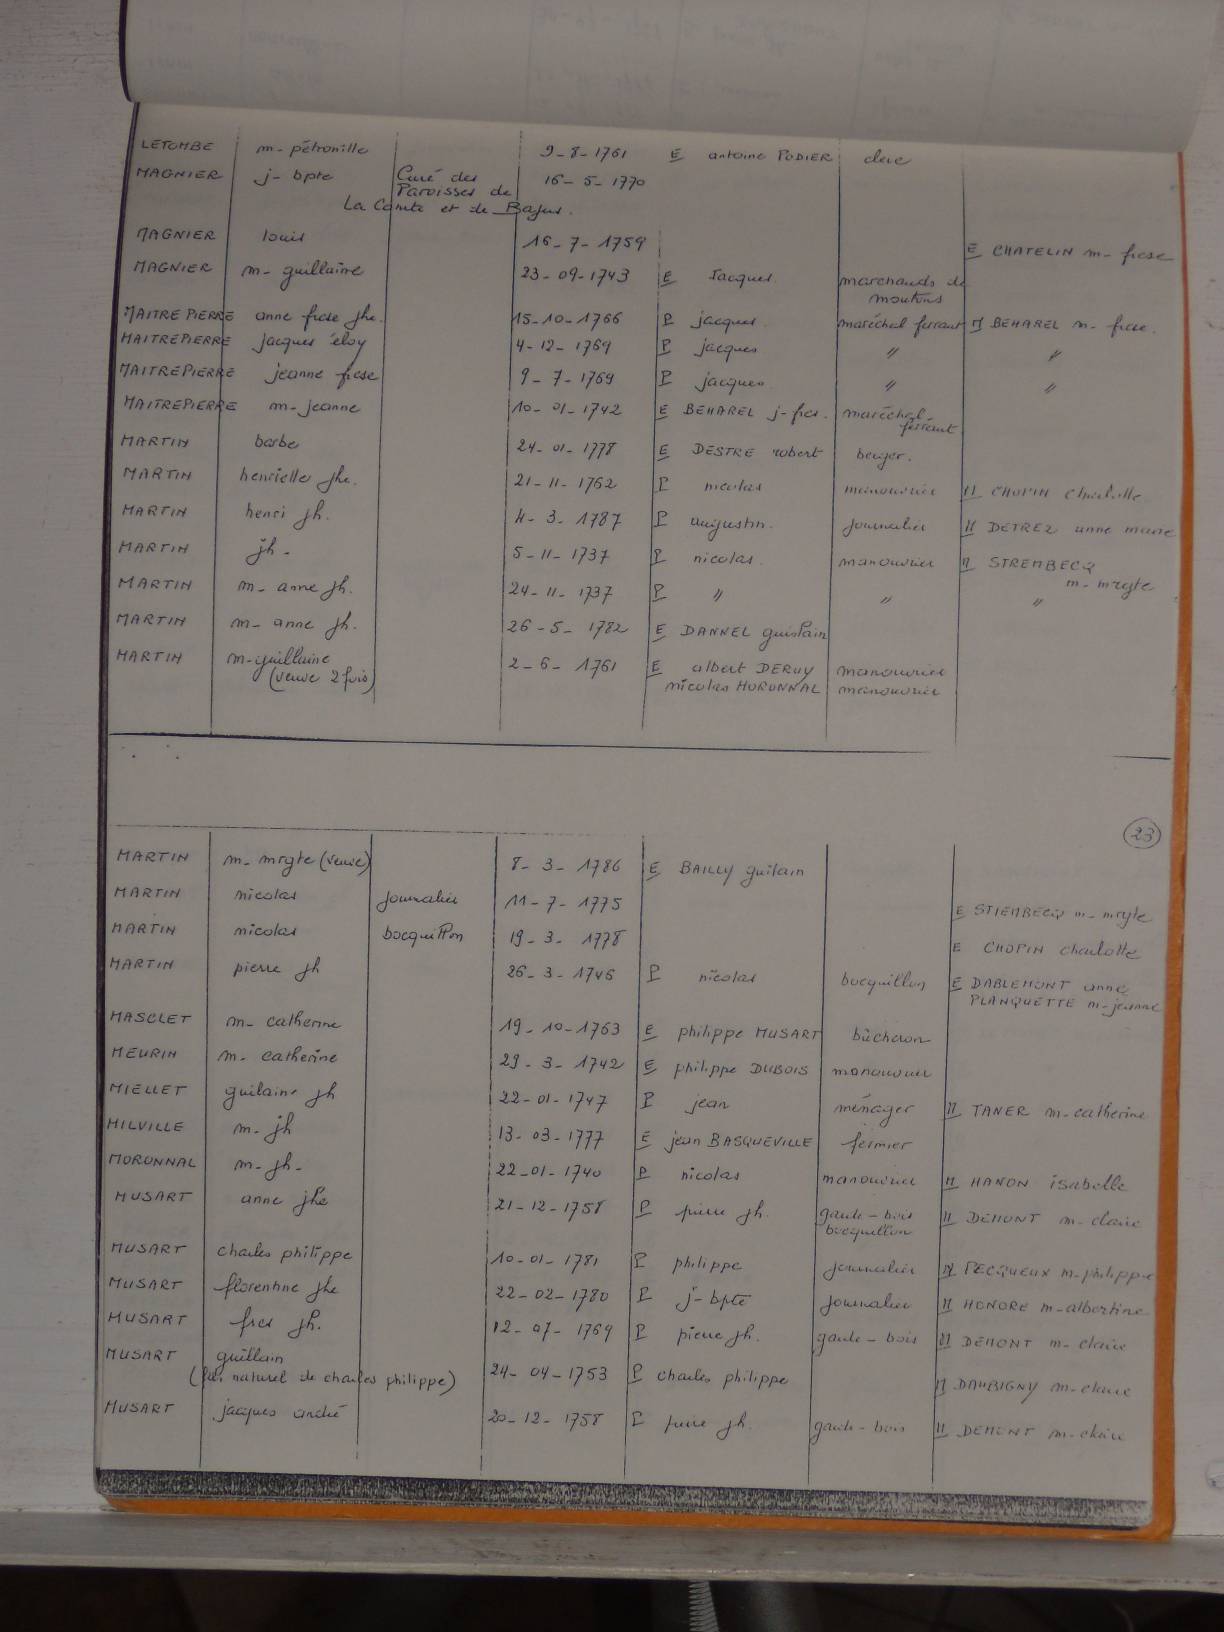 LETOMBE m- pétronille 9-8-1761 E antoine PODIER clerc
MAGNIER j- bpte Curé des 16-5-1770
Paroisses de
La Comte et de Bajus.
MAGNIER louis 16-7-1759 E CHATELIN m- fcse
MAGNIER m- guillaine 23-09-1743 E Jacques. marchands de
moutons
MAITREPIERRE anne fcse jhe. 15-10-1766 P jacques. maréchal ferrant M BEHAREL m- fcse.
MAITREPIERRE jacques éloy 4-12-1769 P jacques " "
MAITREPIERRE jeanne fcse 9-7-1769 P jacques " "
MAITREPIERRE m-jeanne 10-01-1742 E BEHAREL j-fcs. maréchal
ferrant
MARTIN barbe 24-01-1778 E DESTRE robert berger.
MARTIN henrielle jhe. 21-11-1762 P nicolas manouvrier M CHOPIN charlotte
MARTIN henri jh. 4-3-1787 P augustin. journalier M DETREZ anne marie
MARTIN jh- 5-11-1737 P nicolas. manouvrier M STREMBECQ
m-mrgte
MARTIN m- anne jh. 24-11-1737 P " " "
MARTIN m- anne jh. 26-5-1782 E DANNEL guislain
MARTIN m-guillaine 2-6-1761 E albert DERUY manouvrier
(veuve 2 fois) nicolas MORONNAL manouvrier
23
MARTIN m- mrgte (veuve) 8-3-1786 E BAILLY guilain
MARTIN nicolas journalier 11-7-1775 E STIEMBECQ m-mrgte
MARTIN nicolas bocquillon 19-3-1778 E CHOPIN charlotte
MARTIN pierre jh 26-3-1746 P nicolas bocquillon E DABLEMONT anne
PLANQUETTE m-jeanne
MASCLET m- catherine 19-10-1763 E philippe MUSART bûcheron
MEURIN m- catherine 29-3-1742 E philippe DUBOIS manouvrier
MIELLET guilaine jh 22-01-1747 P jean ménager M TANER m-catherine
MILVILLE m-jh 13-03-1777 E jean BASQUEVILLE fermier
MORONNAL m-jh- 22-01-1740 P nicolas manouvrier M HANON isabelle
MUSART anne jhe 21-12-1758 P pierre jh. garde-bois M DEMONT m-claire
bocquillon
MUSART charles philippe 10-01-1781 P philippe journalier M PECQUEUX m-philippe
MUSART florentine jhe 22-02-1780 P j-bpte journalier M HONORE m-albertine
MUSART fcs jh. 12-07-1769 P pierre jh. garde-bois M DEMONT m-claire
MUSART guillain 24-04-1753 P charles philippe M DAUBIGNY m-claire
(fils naturel de charles philippe)
MUSART jacques andré 20-12-1758 P pierre jh. garde-bois M DEMONT m-claire